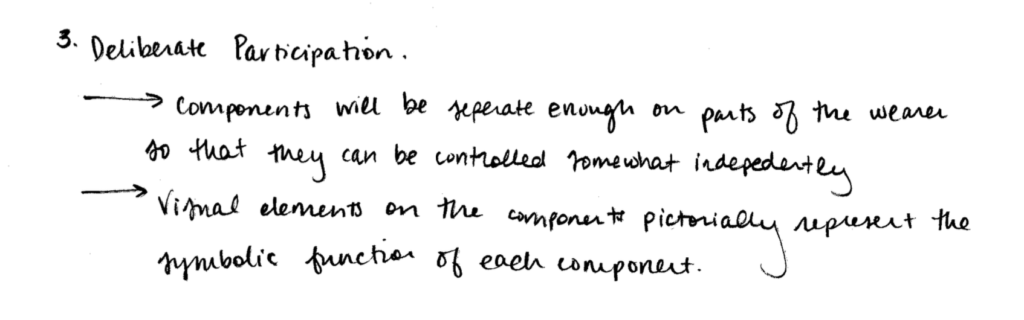 3. Deliberate Participation.
⟶ Components will be seperate enough on parts of the wearer
so that they can be controlled somewhat indepedently
⟶ Visual elements on the components pictorially represent the
symbolic function of each component.